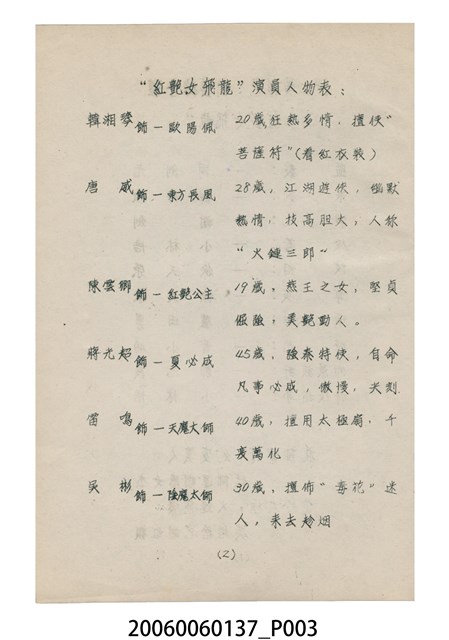 "紅艷女飛龍"演員人物表：
韓湘琴 飾一歐陽佩 20歲狂熱多情，擅使
"菩薩符"(着紅衣裝)
唐威 飾一東方長風 28歲，江湖遊俠，幽默
熱情，技高胆大，人称
"火鏈三郎"
陳雲卿 飾一紅艷公主 19歲，燕王之女，堅貞
倔強，美艷動人。
蔣光超 飾一夏必成 45歲，陰泰特使，自命
凡事必成，傲慢，尖刻
苗鳴 飾一天魔大師 40歲，擅用太極扇，千
變萬化
吳彬 飾一陰魔太師 30歲，擅佈"毒花"迷
人，來去妙烟
(2)
20060060137_P003